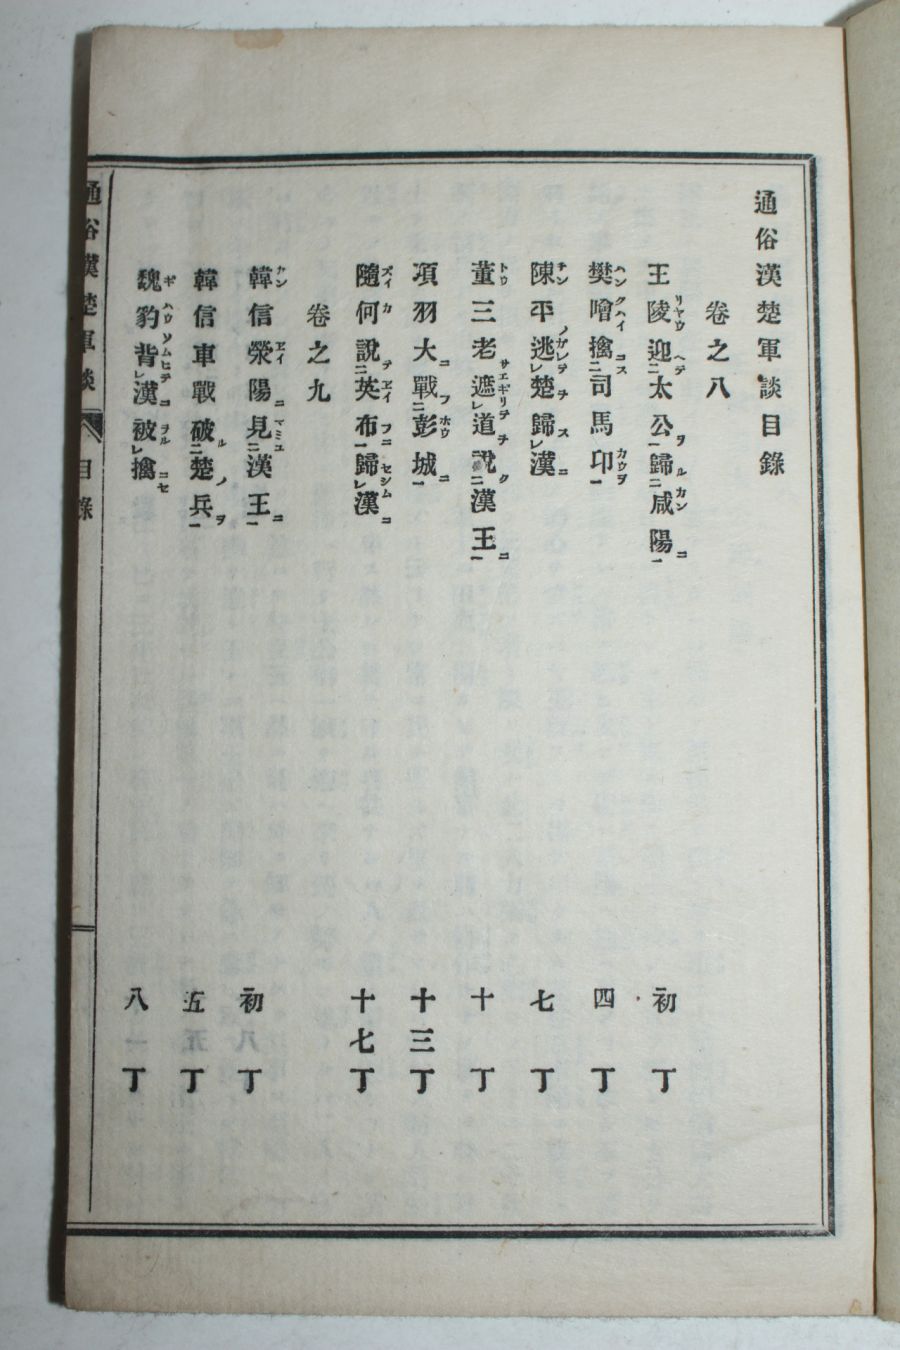 通俗漢楚軍談目錄
卷之八
王陵迎二太公一歸二咸陽一 初丁
樊噲擒二司馬卬一 四丁
陳平逃レ楚歸レ漢 七丁
董三老遮レ道說二漢王一 十丁
項羽大戰二彭城一 十三丁
隨何說二英布一歸レ漢 十七丁
卷之九
韓信滎陽見二漢王一 初丁
韓信車戰破二楚兵一 五丁
魏豹背レ漢被レ擒 八丁
通俗漢楚軍談 目錄